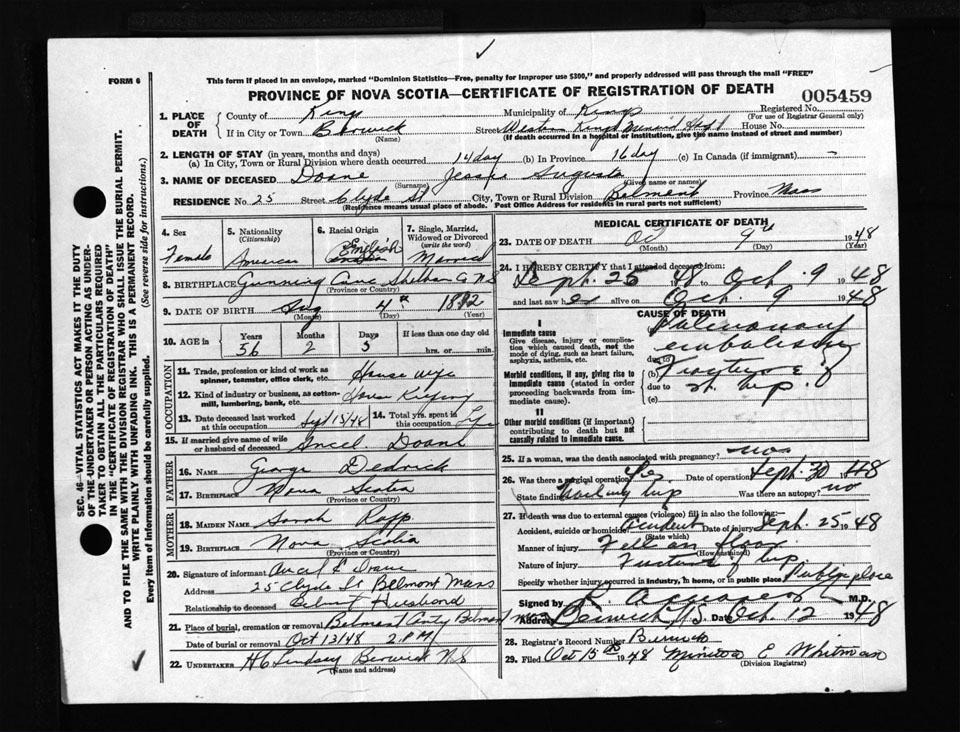 FORM 6
This form if placed in an envelope, marked "Dominion Statistics—Free, penalty for improper use $300," and properly addressed will pass through the mail "FREE"
PROVINCE OF NOVA SCOTIA—CERTIFICATE OF REGISTRATION OF DEATH
005459
SEC. 46—VITAL STATISTICS ACT MAKES IT THE DUTY
OF THE UNDERTAKER OR PERSON ACTING AS UNDER-
TAKER TO OBTAIN ALL THE PARTICULARS REQUIRED
IN THE "CERTIFICATE OF REGISTRATION OF DEATH"
AND TO FILE THE SAME WITH THE DIVISION REGISTRAR WHO SHALL ISSUE THE BURIAL PERMIT.
WRITE PLAINLY WITH UNFADING INK. THIS IS A PERMANENT RECORD.
Every item of information should be carefully supplied. (See reverse side for instructions.)
1. PLACE OF DEATH
County of Kings Municipality of Kings Registered No.
(For use of Registrar General only)
If in City or Town Berwick Street Western Kings Memorial House No.
(Name) (If death occurred in a hospital or institution, give the name instead of street and number)
2. LENGTH OF STAY (in years, months and days)
(a) In City, Town or Rural Division where death occurred 14 day (b) In Province 16 day (c) In Canada (if immigrant) –
3. NAME OF DECEASED Doane Jessie Augusta
(Surname) (Given name or names)
RESIDENCE No. 25 Street Clyde St City, Town or Rural Division Belmont Province Mass
(Residence means usual place of abode. Post Office Address for residents in rural parts not sufficient)
4. Sex Female
5. Nationality (Citizenship) American
6. Racial Origin English
7. Single, Married, Widowed or Divorced (write the word) Married
8. BIRTHPLACE Gunning Cove Shelburne Co N S
(Province or Country)
9. DATE OF BIRTH Aug 4th 1892
(Month) (Day) (Year)
10. AGE IN Years 56 Months 2 Days 5 If less than one day hrs. or min.
OCCUPATION
11. Trade, profession or kind of work as spinner, teamster, office clerk, etc. House wife
12. Kind of industry or business, as cotton-mill, lumbering, bank, etc. House Keeping
13. Date deceased last worked at this occupation Sept 13/48 14. Total yrs. spent in this occupation Life
15. If married give name of wife or husband of deceased Ancil Doane
FATHER
16. NAME George Dedrick
17. BIRTHPLACE Nova Scotia
(Province or Country)
MOTHER
18. MAIDEN NAME Sarah Rapp
19. BIRTHPLACE Nova Scotia
(Province or Country)
20. Signature of informant Ancil Doane
Address 25 Clyde St Belmont Mass
Relationship to deceased Husband
21. Place of burial, cremation or removal Belmont Belmont Mass
Date of burial or removal Oct 13/48 2 P.M.
22. UNDERTAKER H C Lindsay Berwick N S
(Name and address)
MEDICAL CERTIFICATE OF DEATH
23. DATE OF DEATH Oct 9th 1948
(Month) (Day) (Year)
24. I HEREBY CERTIFY that I attended deceased from:
Sept. 25 1948 to Oct. 9 1948
and last saw her alive on Oct. 9 1948
CAUSE OF DEATH
I
Immediate cause
Give disease, injury or complication which caused death, not the mode of dying, such as heart failure, asphyxia, asthenia, etc.
Pulmonary embolism
due to
Morbid conditions, if any, giving rise to immediate cause (stated in order proceeding backwards from immediate cause).
(b) Fracture of
due to rt. hip.
(c)
II
Other morbid conditions (if important) contributing to death but not causally related to immediate cause.
25. If a woman, was the death associated with pregnancy? no
26. Was there a surgical operation? Yes Date of operation Sept. 30 1948
State finding Nailing hip Was there an autopsy? no
27. If death was due to external causes (violence) fill in also the following:
Accident, suicide or homicide? Accident Date of injury Sept. 25 1948
(State which)
Manner of injury Fell on floor
(How sustained)
Nature of injury Fracture of hip
Specify whether injury occurred in Industry, in home, or in public place Public place
Signed by M.D.
Address Berwick N.S. Date Oct. 12 1948
28. Registrar's Record Number Berwick
29. Filed Oct 15th 1948 E Whitman
(Division Registrar)